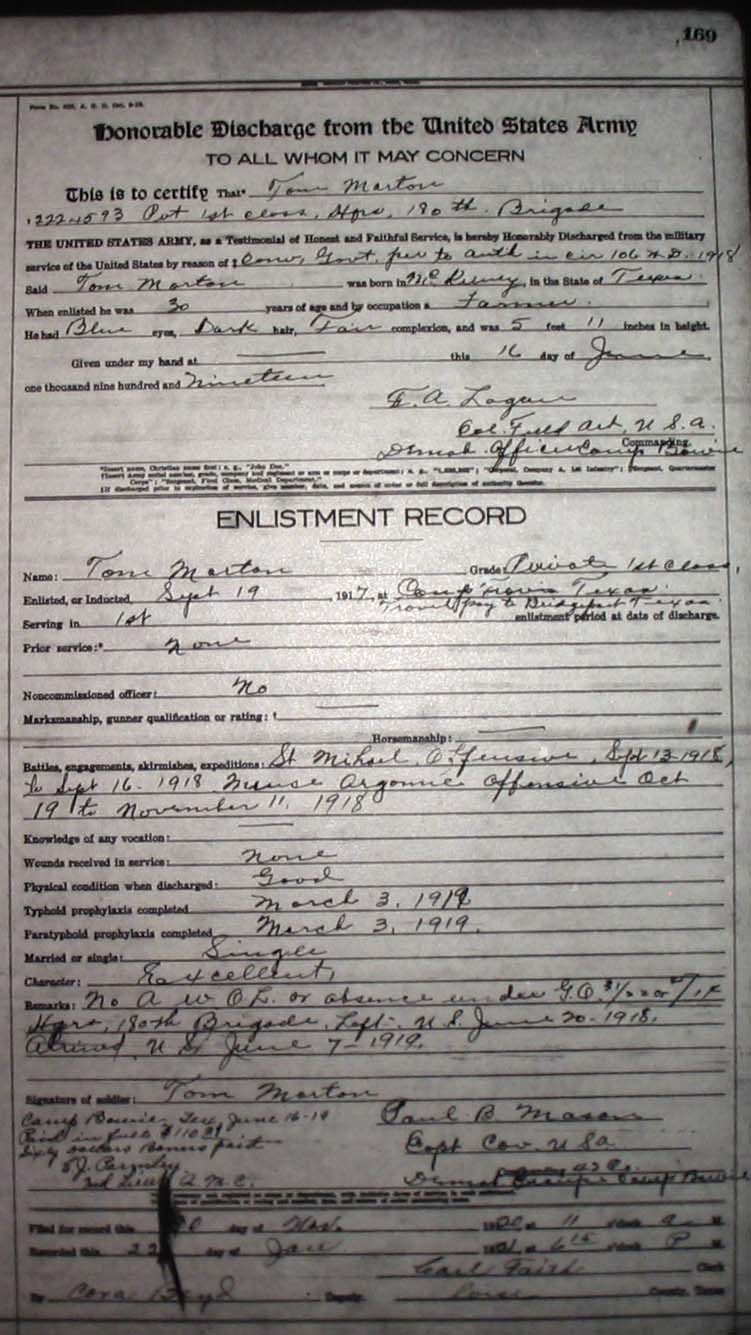 169
Form No. 525, A. G. O. Oct. 9-18.
Honorable Discharge from the United States Army
TO ALL WHOM IT MAY CONCERN
This is to certify That* Tom Morton
Pvt 1st class, Hqrs, 180th. Brigade
THE UNITED STATES ARMY, as a Testimonial of Honest and Faithful Service, is hereby Honorably Discharged from the military
service of the United States by reason of ‡ Conv, Govt. per to auth in cir 106 W.D. 1918
Said Tom Morton was born in McKinney, in the State of Texas.
When enlisted he was 30 years of age and by occupation a Farmer.
He had Blue eyes, Dark hair, Fair complexion, and was 5 feet 11 inches in height.
Given under my hand at this 16 day of June,
one thousand nine hundred and Nineteen
F. A. Logan
Col. Field Art, U.S.A.
Demob. Officer Camp Bowie
Commanding.
*Insert name, Christian name first; e. g., "John Doe."
ENLISTMENT RECORD
Name: Tom Morton Grade: Private 1st Class,
Enlisted, or Inducted, Sept 19, 1917, at Camp Travis Texas.
Travel pay to Bridgeport Texas.
Serving in 1st enlistment period at date of discharge.
Prior service:* None
Noncommissioned officer: No
Marksmanship, gunner qualification or rating: †
Horsemanship:
Battles, engagements, skirmishes, expeditions: St Mihael Offensive, Sept 13-1918,
to Sept 16. 1918 Meuse Argonne offensive Oct
19 to November 11, 1918
Knowledge of any vocation:
Wounds received in service: None
Physical condition when discharged: Good
Typhoid prophylaxis completed March 3, 1919
Paratyphoid prophylaxis completed March 3, 1919.
Married or single: Single
Character: Excellent,
Remarks: No A W O L. or absence under G.O.
Hqrs, 180th Brigade, Left U.S. June 20-1918.
Arrived U.S. June 7-1919.
Signature of soldier: Tom Morton
Camp Bowie, Tex, June 16-19
Paid in full
Sixty dollars Bonus paid
A.M.C.
Paul B. Mason
Capt Cav. U S A
Demob Camp Bowie
Filed for record this day of Nov. 1920 at 11 o'clock a M.
Recorded this 22 day of Jan 6 15 o'clock P M.
Carl Faith Clerk
By Cora Boyd Deputy. County, Texas